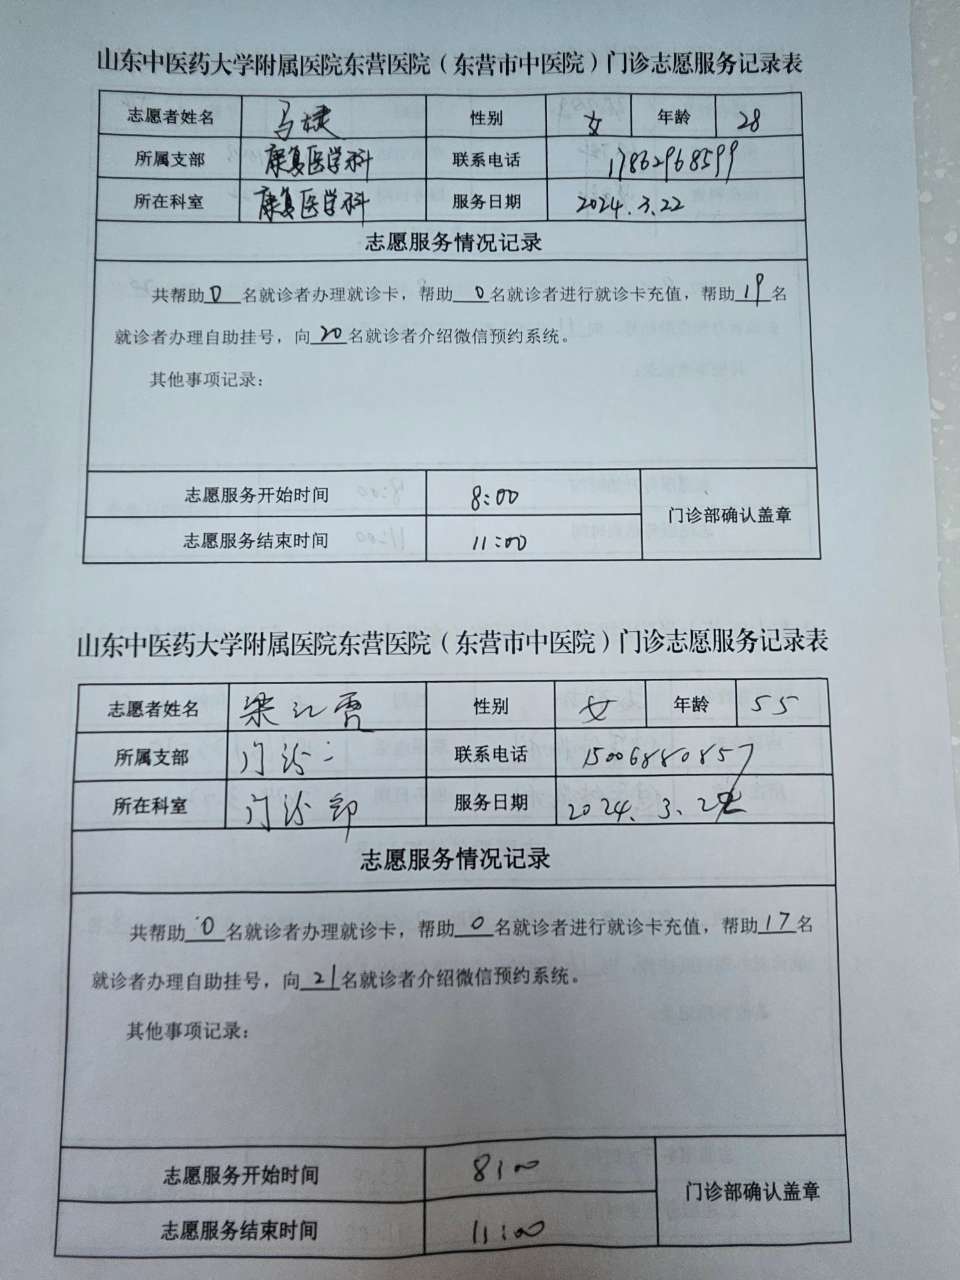 山东中医药大学附属医院东营医院（东营市中医院）门诊志愿服务记录表
志愿者姓名 马捷 性别 女 年龄 28
所属支部 康复医学科 联系电话 17862968599
所在科室 康复医学科 服务日期 2024.3.22
志愿服务情况记录
共帮助0名就诊者办理就诊卡，帮助0名就诊者进行就诊卡充值，帮助19名
就诊者办理自助挂号，向20名就诊者介绍微信预约系统。
其他事项记录：
志愿服务开始时间 8:00
门诊部确认盖章
志愿服务结束时间 11:00
山东中医药大学附属医院东营医院（东营市中医院）门诊志愿服务记录表
志愿者姓名 梁江霞 性别 女 年龄 55
所属支部 门诊二 联系电话 15006880857
所在科室 门诊部 服务日期 2024.3.
志愿服务情况记录
共帮助0名就诊者办理就诊卡，帮助0名就诊者进行就诊卡充值，帮助17名
就诊者办理自助挂号，向21名就诊者介绍微信预约系统。
其他事项记录：
志愿服务开始时间 8:00
门诊部确认盖章
志愿服务结束时间 11:00